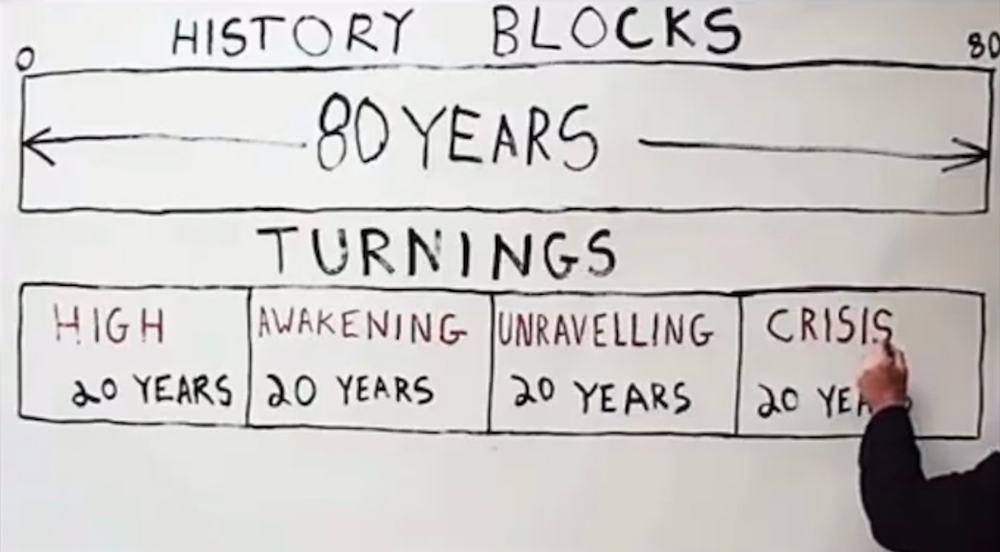 HISTORY BLOCKS
0 80
80 YEARS
TURNINGS
HIGH AWAKENING UNRAVELLING CRISIS
20 YEARS 20 YEARS 20 YEARS 20